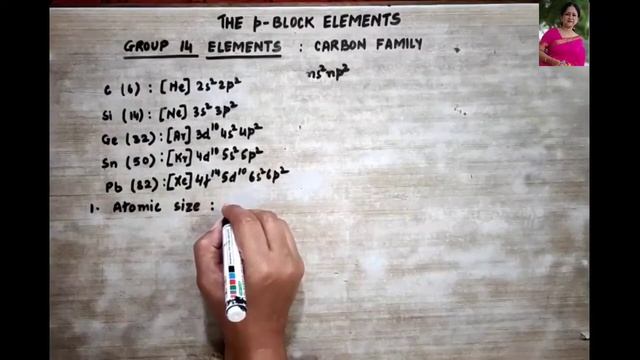 THE p-BLOCK ELEMENTS
GROUP 14 ELEMENTS : CARBON FAMILY
ns²np²
C (6) : [He] 2s²2p²
Si (14) : [Ne] 3s²3p²
Ge (32) : [Ar] 3d¹⁰4s²4p²
Sn (50) : [Kr] 4d¹⁰5s²5p²
Pb (82) : [Xe] 4f¹⁴5d¹⁰6s²6p²
1. Atomic size :